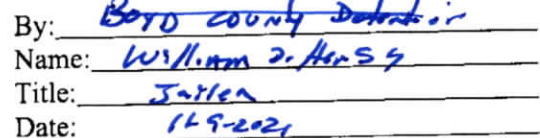 By: BOYD COUNTY Detention
Name: William D. Hensley
Title: Jailer
Date: 11-9-2021